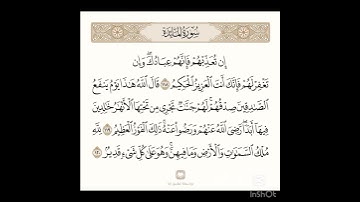 سُورَةُ المَائِدَةِ
إِن تُعَذِّبْهُمْ فَإِنَّهُمْ عِبَادُكَ ۖ وَإِن
تَغْفِرْ لَهُمْ فَإِنَّكَ أَنتَ الْعَزِيزُ الْحَكِيمُ ١١٨ قَالَ اللَّهُ هَٰذَا يَوْمُ يَنفَعُ
الصَّادِقِينَ صِدْقُهُمْ ۚ لَهُمْ جَنَّاتٌ تَجْرِي مِن تَحْتِهَا الْأَنْهَارُ خَالِدِينَ
فِيهَا أَبَدًا ۚ رَّضِيَ اللَّهُ عَنْهُمْ وَرَضُوا عَنْهُ ۚ ذَٰلِكَ الْفَوْزُ الْعَظِيمُ ١١٩ لِلَّهِ
مُلْكُ السَّمَاوَاتِ وَالْأَرْضِ وَمَا فِيهِنَّ ۚ وَهُوَ عَلَىٰ كُلِّ شَيْءٍ قَدِيرٌ ١٢٠
InShOt